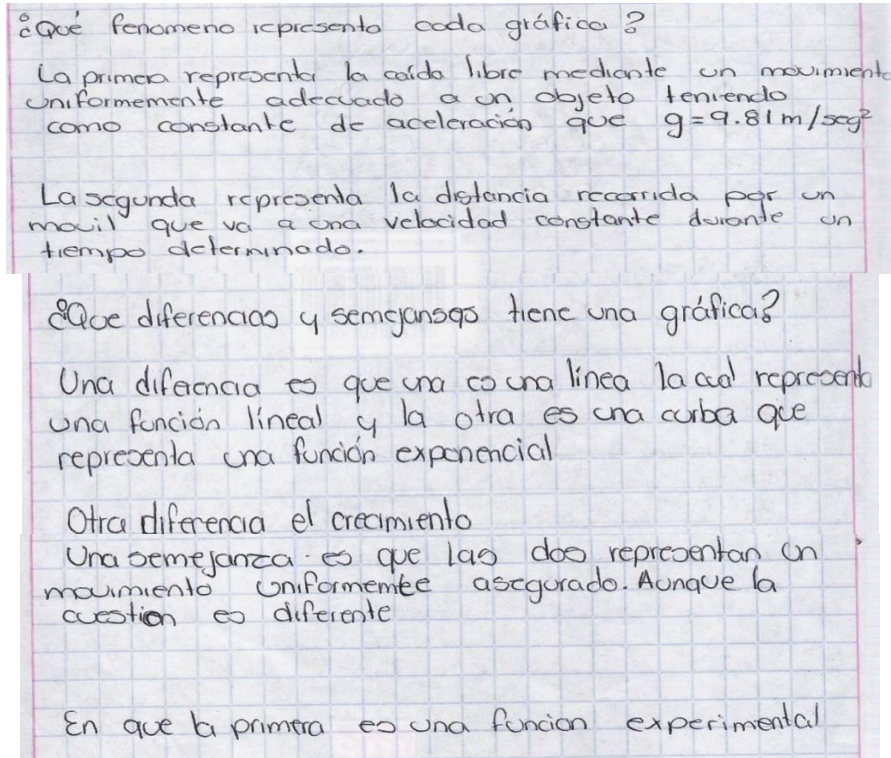 ¿Qué fenomeno representa cada gráfica?
La primera representa la caída libre mediante un movimiento
uniformemente adecuado a un objeto teniendo
como constante de aceleración que g=9.81m/seg²
La segunda representa la distancia recorrida por un
movil que va a una velocidad constante durante un
tiempo determinado.
¿Que diferencias y semejansas tiene una gráfica?
Una diferencia es que una es una línea la cual representa
una función líneal y la otra es una curba que
representa una función exponencial
Otra diferencia el crecimiento
Una semejanza es que las dos representan un
movimiento uniformemte asegurado. Aunque la
cuestion es diferente
En que la primera es una funcion experimental